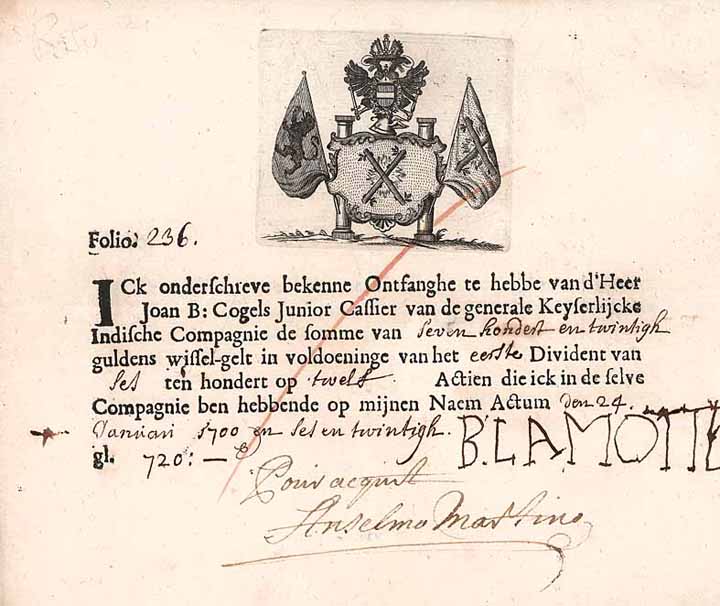 Folio: 236.
ICk onderschreve bekenne Ontfanghe te hebbe van d'Heer
Joan B: Cogels Junior Cassier van de generale Keyserlijcke
Indische Compagnie de somme van seven hondert en twintigh
guldens wissel-gelt in voldoeninge van het eerste Divident van
ses ten hondert op twelf. Actien die ick in de selve
Compagnie ben hebbende op mijnen Naem Actum den 24.
Januari 1700 en ses en twintigh. B. LAMOTTE
gl. 720: —
Pour acquit
Anselmo Martino